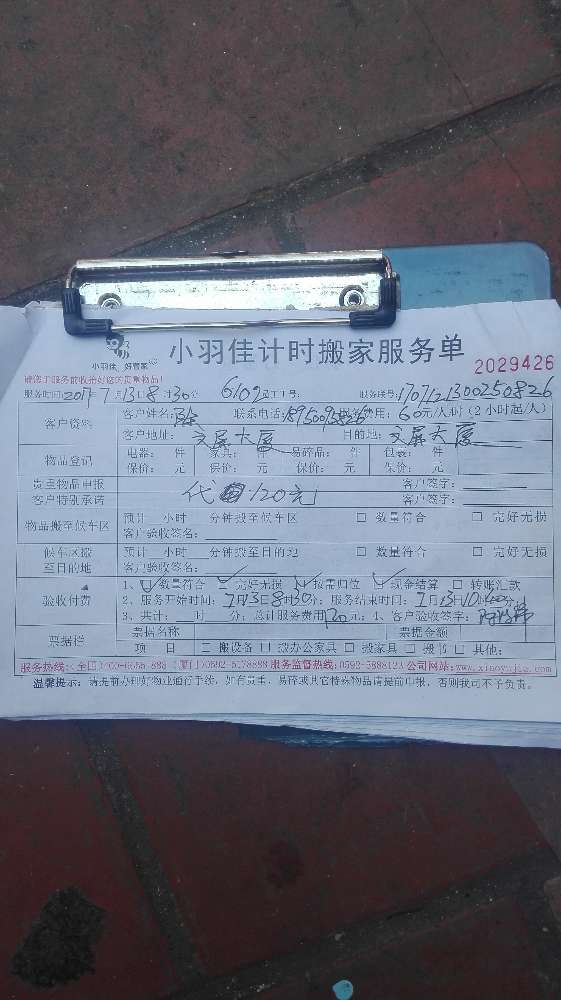 小羽佳 好管家
小羽佳计时搬家服务单
2029426
请您于服务前收拾好您的贵重物品!
服务时间:2017年7月13日8时30分 6109员工工号: 服务单号:1707121300250826
客户资料 客户姓名: 联系电话: 服务费用:60元/人/时(2小时起/人)
客户地址:文屏大厦 目的地:文屏大厦
物品登记 电器: 件 家具: 件 易碎品: 件 包裹: 件
保价: 元 保价: 元 保价: 元 保价: 元
贵重物品申报 客户签字:
客户特别承诺 代 120元 客户签字:
物品搬至候车区 预计 小时 分钟搬至候车区 □ 数量符合 □ 完好无损
客户验收签名:
候车区搬至目的地 预计 小时 分钟搬至目的地 □ 数量符合 □ 完好无损
客户验收签名:
验收付费 1、数量符合 完好无损 按需归位 现金结算 □ 转账汇款
2、服务开始时间:7月13日8时30分; 服务结束时间:7月13日10时 分;
3、共计: 时 分; 总计服务费用120元; 4、客户验收签字:
票据栏 票据名称 票据金额
项 目 □ 搬设备 □ 搬办公家具 □ 搬家具 □ 搬书 □ 其他:
服务监督热线:0592-5888123 公司网站:
温馨提示: 请提前办理好物业通行手续, 如有贵重、易碎或其它特殊物品请提前申报, 否则我司不予负责。